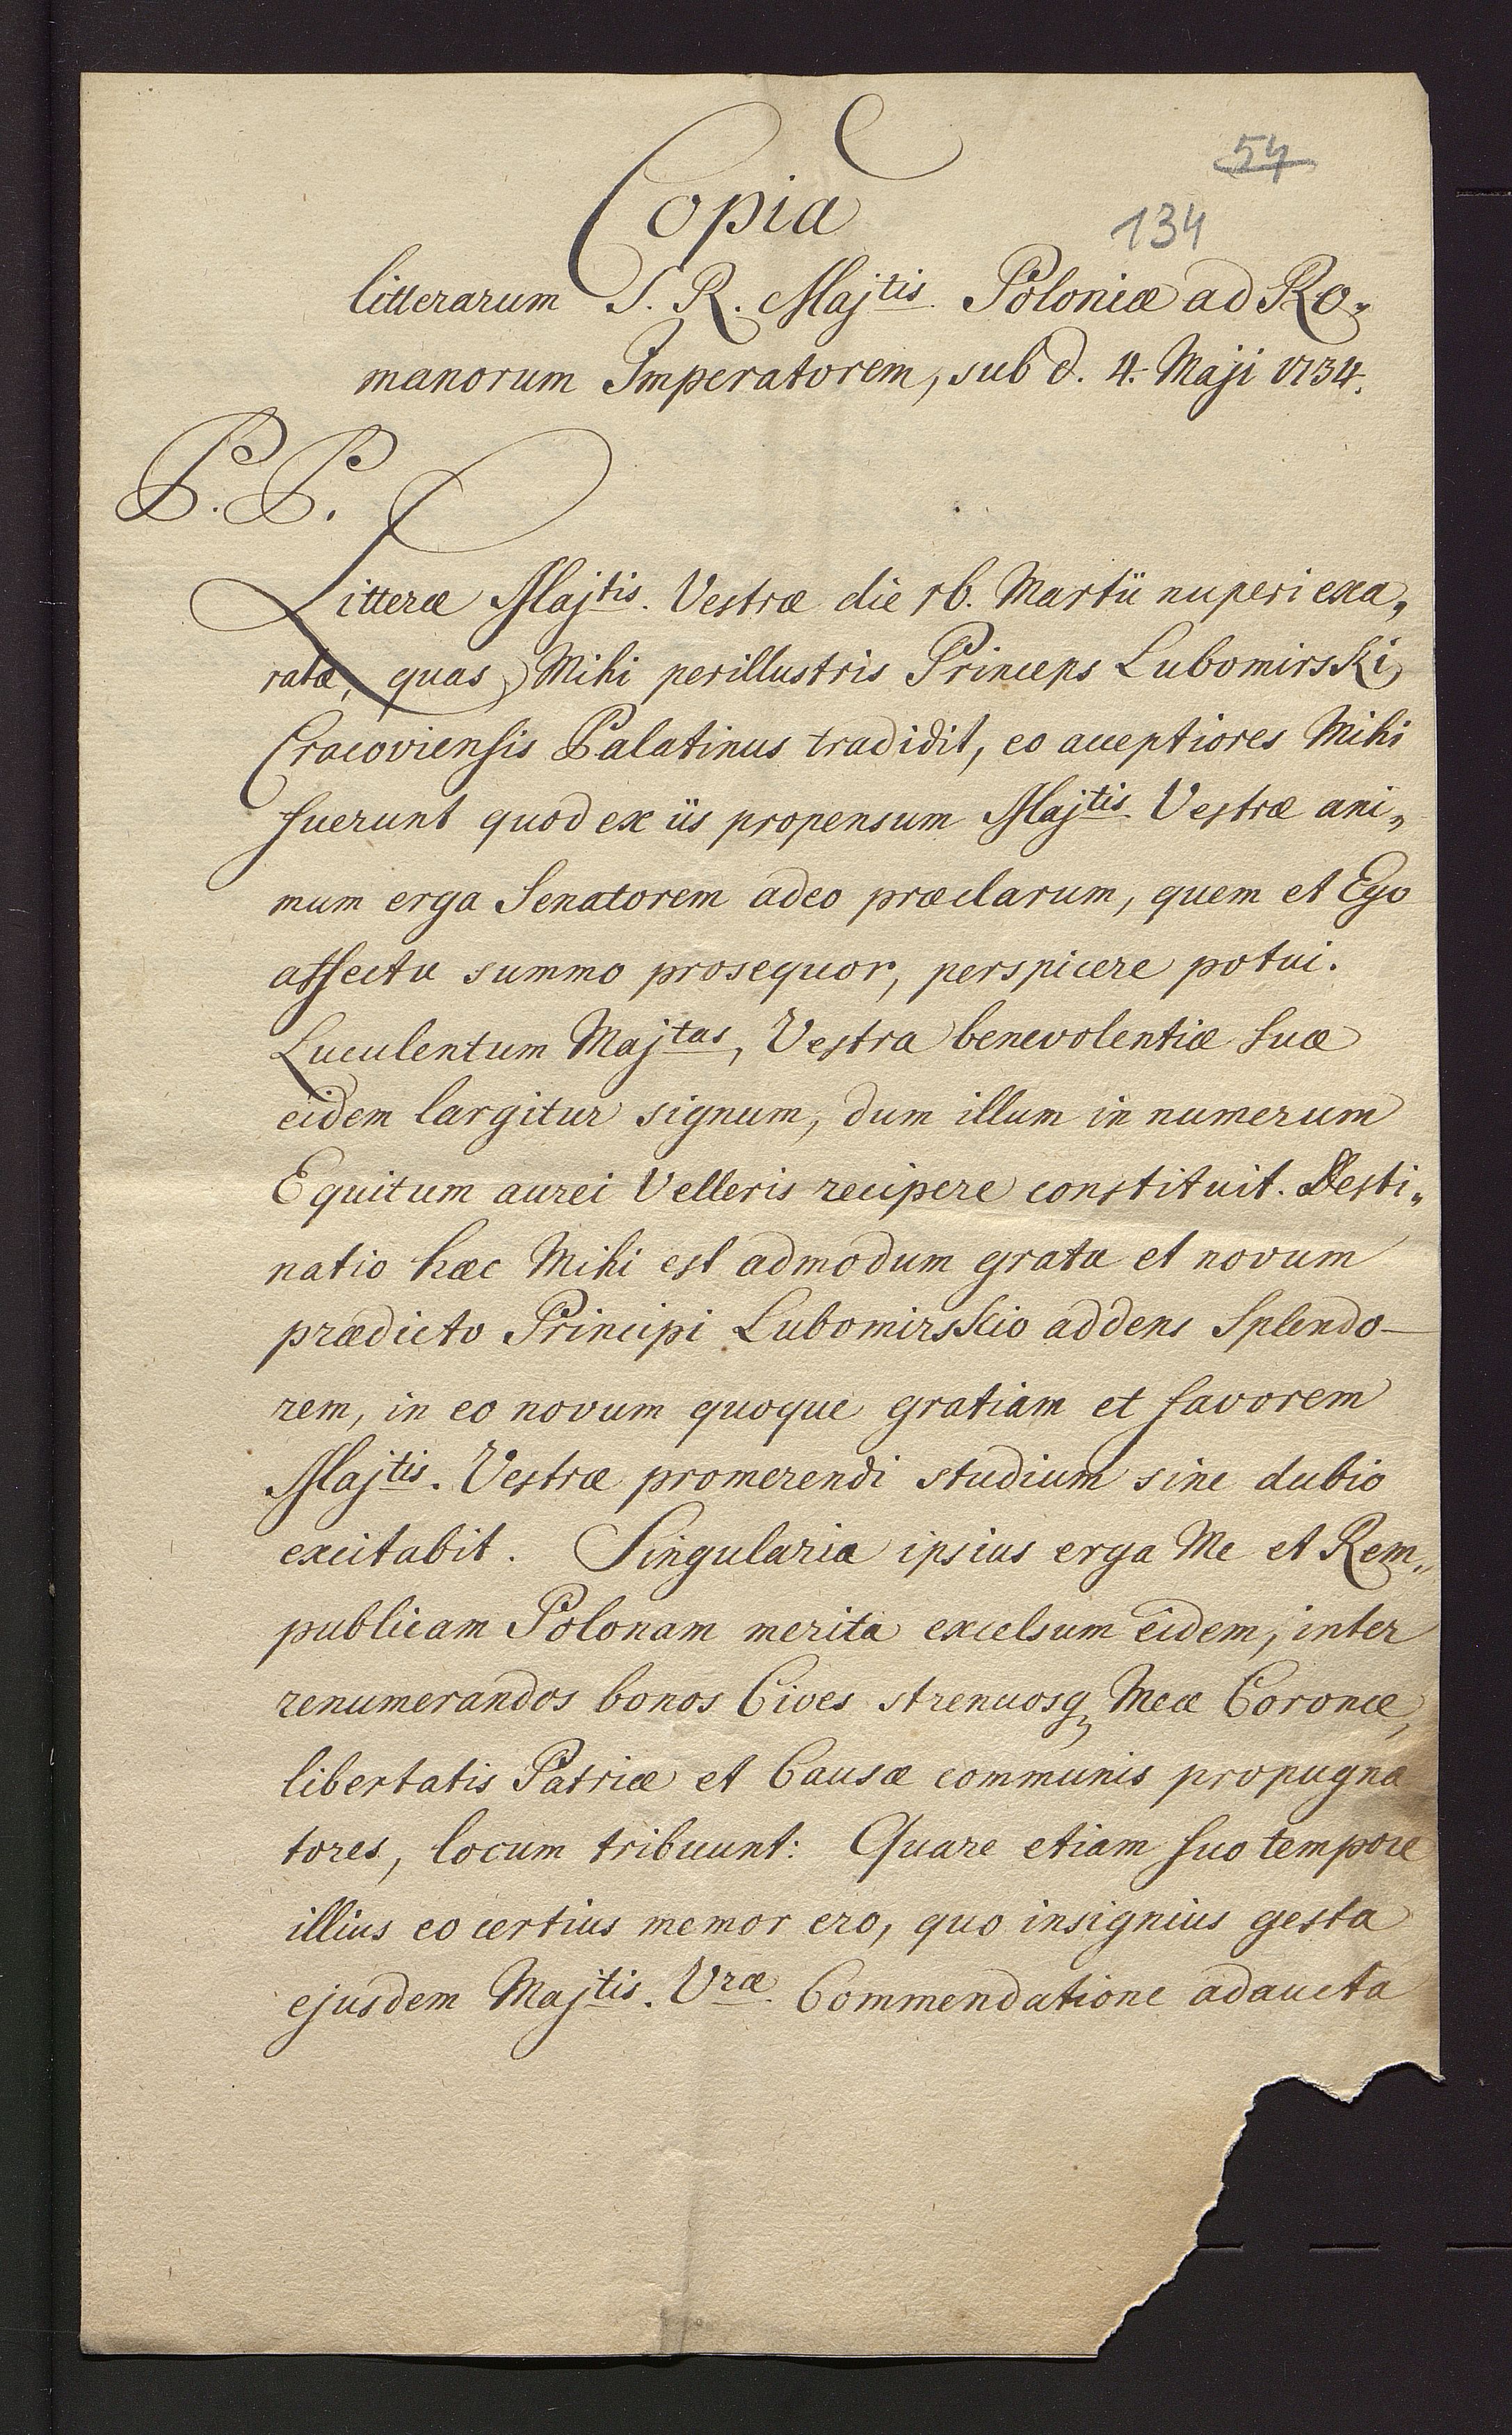 54
Copia
134
litterarum S. R. Majtis Poloniæ ad Ro„
manorum Imperatorem, sub d. 4. Maji 1734.
P. P.
Litteræ Majtis. Vestræ die 16. Martii nuperi exa„
ratæ, quas Mihi perillustris Princeps Lubomirski
Cracoviensis Palatinus tradidit, eo acceptiores Mihi
fuerunt quod ex iis propensum Majtis Vestræ ani„
mum erga Senatorem adeo præclarum, quem et Ego
affectu summo prosequor, perspicere potui.
Luculentum Majtas, Vestra benevolentiæ suæ
eidem largitur signum, dum illum in numerum
Equitum aurei Velleris recipere constituit. Desti„
natio hæc Mihi est admodum grata et novum
prædicto Principi Lubomirskio addens Splendo-
rem, in eo novum quoque gratiam et favorem
Majtis. Vestræ promerendi studium sine dubio
excitabit. Singularia ipsius erga Me et Rem„
publicam Polonam merita excelsum eidem, inter
renumerandos bonos Cives strenuosq Meæ Coronæ,
libertatis Patriæ et Causæ communis propugna
tores, locum tribuunt: Quare etiam suo tempore
illius eo certius memor ero, quo insignius gesta
ejusdem Majtis. Vræ. Commendatione adaucta